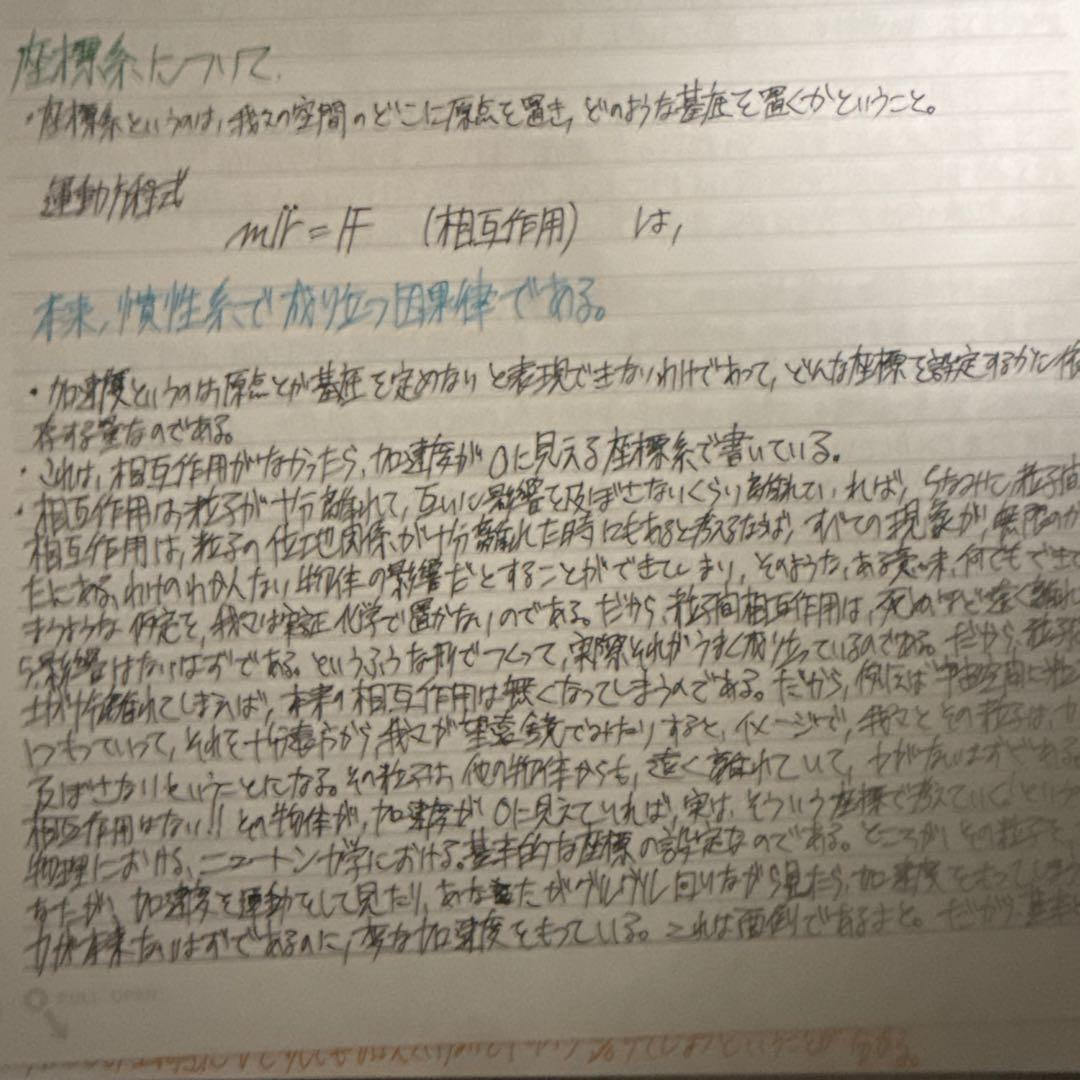 座標系について
・座標系というのは、我々の空間のどこに原点を置き、どのような基底を置くかということ。
運動方程式
mr̈ = F (相互作用) は、
本来、慣性系で成り立つ因果律である。
・加速度というのは原点とか基底を定めないと表現できないわけであって、どんな座標を設定するかに依
存する量なのである。
・これは、相互作用がなかったら、加速度が0に見える座標系で書いている。
・相互作用は粒子が十分離れて、互いに影響を及ぼさないくらい離れていれば、ちなみに、粒子間
相互作用は、粒子の位置関係が十分離れた時にもあると考えるならば、すべての現象が、無限のか
たにある、わけのわかんない物体の影響だとすることができてしまい、そのような、ある意味、何でもできて
しまうような仮定を、我々は実証化学で置かないのである。だから、粒子間相互作用は、死ぬほど遠く離れ
ら影響はないはずである。というふうな形でつくって、実際それがうまく成り立っているのである。だから、粒子
が十分離れてしまえば、本来の相互作用は無くなってしまうのである。だから、例えば宇宙空間に
もっていって、それを十分遠方から、我々が望遠鏡でみたりすると、イメージで、我々とその粒子は、力
及ばさないということになる。その粒子は、他の物体からも、遠く離れていて、力がないはずである。
相互作用はない!! その物体が、加速度が0に見えていれば、実は、そういう座標で考えていくという
物理における、ニュートン力学における。基本的な座標の設定なのである。ところが、その粒子を、
なたが、加速度を運動をして見たり、あなたがグルグル回りながら見たら、加速度をもってしまう
力が本来ないはずであるのに、変な加速度をもっている。これは面倒であるまと。だから、基本
FULL OPEN